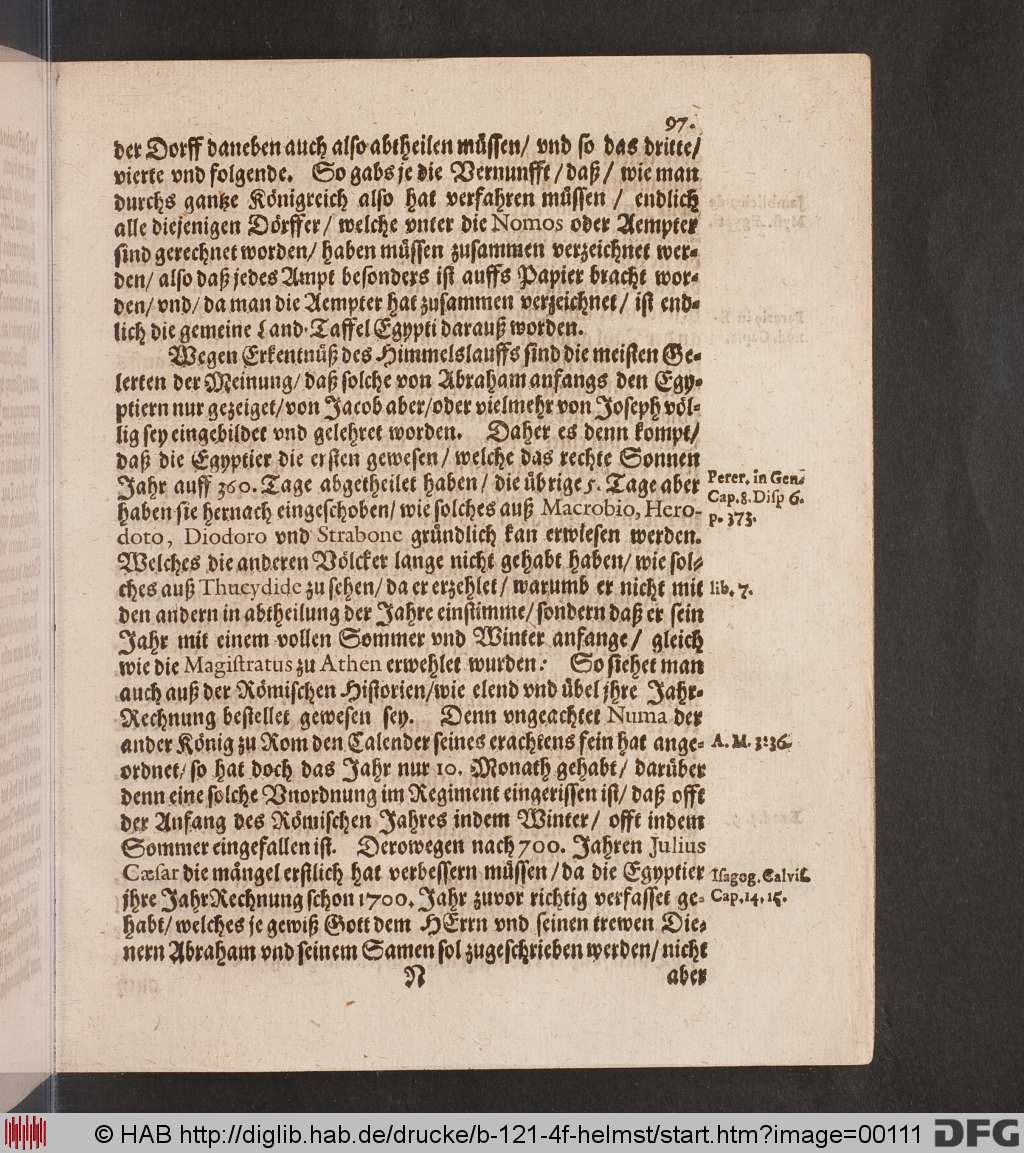 97.
der Dorff daneben auch also abtheilen müssen/ vnd so das dritte/
vierte vnd folgende. So gabs je die Vernunfft/ daß/ wie man
durchs gantze Königreich also hat verfahren müssen / endlich
alle diejenigen Dörffer/ welche vnter die Nomos oder Aempter
sind gerechnet worden/ haben müssen zusammen verzeichnet wer-
den/ also daß jedes Ampt besonders ist auffs Papier bracht wor-
den/ vnd/ da man die Aempter hat zusammen verzeichnet/ ist end-
lich die gemeine Land-Taffel Egypti darauß worden.
Wegen Erkentnüß des Himmelslauffs sind die meisten Ge-
lerten der Meinung/ daß solche von Abraham anfangs den Egy-
ptiern nur gezeiget/ von Jacob aber/ oder vielmehr von Joseph völ-
lig sey eingebildet vnd gelehret worden. Daher es denn kompt/
daß die Egyptier die ersten gewesen/ welche das rechte Sonnen
Jahr auff 360. Tage abgetheilet haben/ die übrige 5. Tage aber
Perer. in Gen.
Cap. 8. Disp 6.
p. 373.
haben sie hernach eingeschoben/ wie solches auß Macrobio, Hero-
doto, Diodoro vnd Strabone gründlich kan erwiesen werden.
Welches die anderen Völcker lange nicht gehabt haben/ wie sol-
ches auß Thucydide zu sehen/ da er erzehlet/ warumb er nicht mit
lib. 7.
den andern in abtheilung der Jahre einstimme/ sondern daß er sein
Jahr mit einem vollen Sommer vnd Winter anfange/ gleich
wie die Magistratus zu Athen erwehlet wurden: So siehet man
auch auß der Römischen Historien/ wie elend vnd übel jhre Jahr-
Rechnung bestellet gewesen sey. Denn vngeachtet Numa der
ander König zu Rom den Calender seines erachtens fein hat ange-
A. M. 3236.
ordnet/ so hat doch das Jahr nur 10. Monath gehabt/ darüber
denn eine solche Vnordnung im Regiment eingerissen ist/ daß offt
der Anfang des Römischen Jahres in dem Winter/ offt in dem
Sommer eingefallen ist. Derowegen nach 700. Jahren Julius
Cæsar die mängel erstlich hat verbessern müssen/ da die Egyptier
Isagog. Calvis.
Cap. 14. 15.
jhre JahrRechnung schon 1700. Jahr zuvor richtig verfasset ge-
habt/ welches je gewiß Gott dem HErrn vnd seinen trewen Die-
nern Abraham vnd seinem Samen sol zugeschrieben werden/ nicht
N
aber
© HAB http://diglib.hab.de/drucke/b-121-4f-helmst/start.htm?image=00111
DFG